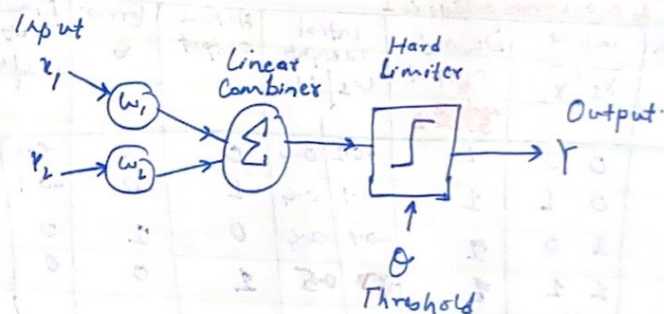 Input
x₁
w₁
x₂
w₂
Linear
Combiner
Σ
Hard
Limiter
Output
Y
θ
Threshold